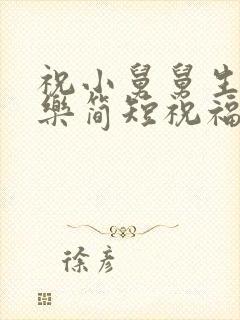 祝小舅舅生
樂简短祝福
徐彦